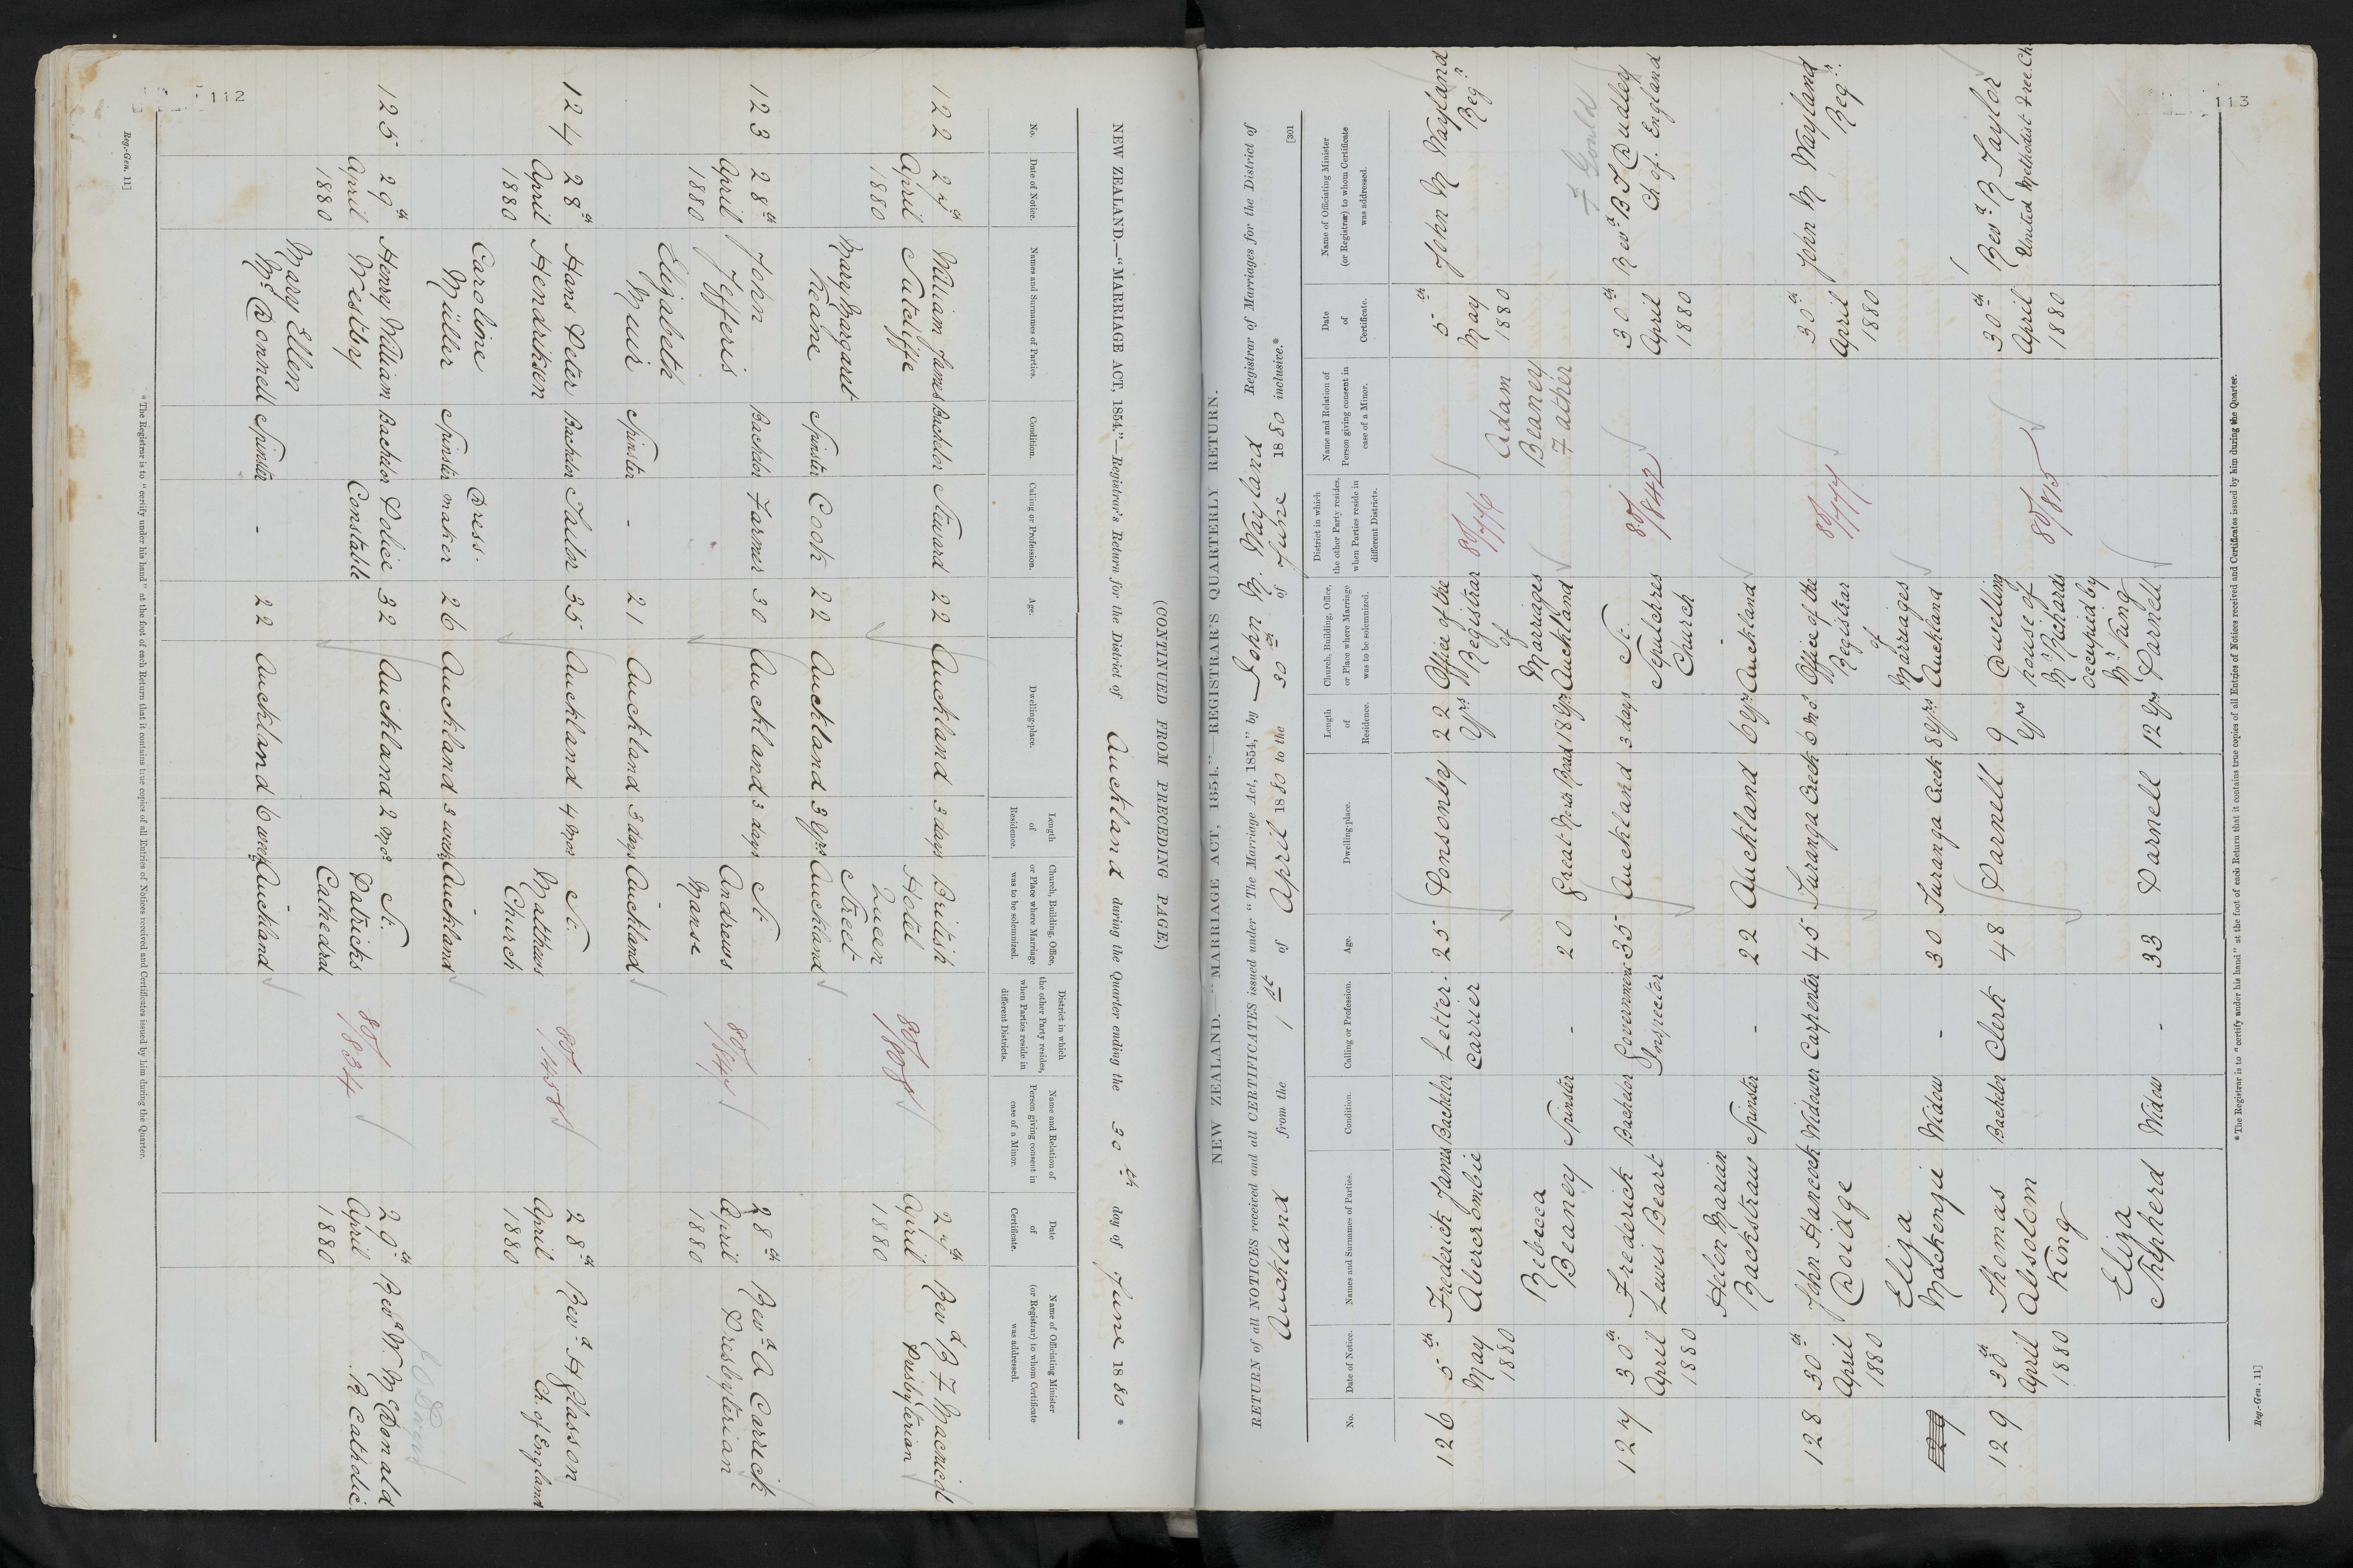 112
(CONTINUED FROM PRECEDING PAGE.)
NEW ZEALAND.—"MARRIAGE ACT, 1854."—Registrar's Return for the District of Auckland during the Quarter ending the 30th day of June 1880 *
No. Date of Notice. Names and Surnames of Parties. Condition. Calling or Profession. Age. Dwelling-place. Length of Residence. Church, Building, Office, or Place where Marriage was to be solemnized. District in which the other Party resides, when Parties reside in different Districts. Name and Relation of Person giving consent in case of a Minor. Date of Certificate. Name of Officiating Minister (or Registrar) to whom Certificate was addressed.
122 27th William James Bachelor Steward 22 Auckland 3 days British 27th Revd R F Macnicol
April Sutcliffe Hotel 80/808 April Presbyterian
1880 Queen 1880
Mary Margaret Street
Keane Spinster Cook 22 Auckland 3 yrs Auckland
123 28th John Bachelor Farmer 30 Auckland 3 days St. 28th Revd A Carrick
April Jefferis Andrews 80/847 April Presbyterian
1880 Manse 1880
Elizabeth
Muir Spinster - 21 Auckland 3 days Auckland
124 28th Hans Peter Bachelor Tailor 35 Auckland 4 mos St. 28th Revd H Glasson
April Hendriksen Matthews 80/1458 April Ch. of England
1880 Church 1880
Caroline Dress-
Müller Spinster maker 26 Auckland 3 weeks Auckland
125 29th Henry William Bachelor Police 32 Auckland 2 mos. St. 29th Revd W. McDonald
April Westby Constable Patricks 80/834 April R Catholic
1880 Cathedral 1880
Mary Ellen
McDonnell Spinster - 22 Auckland 6 weeks Auckland
* The Registrar is to "certify under his hand" at the foot of each Return that it contains true copies of all Entries of Notices received and Certificates issued by him during the Quarter.
Reg.-Gen. 11]
113
[301
NEW ZEALAND.—"MARRIAGE ACT, 1854."—REGISTRAR'S QUARTERLY RETURN.
RETURN of all NOTICES received and all CERTIFICATES issued under "The Marriage Act, 1854," by John M. Wayland Registrar of Marriages for the District of
Auckland from the 1st of April 1880 to the 30th of June 1880 inclusive.*
No. Date of Notice. Names and Surnames of Parties. Condition. Calling or Profession. Age. Dwelling-place. Length of Residence. Church, Building, Office, or Place where Marriage was to be solemnized. District in which the other Party resides, when Parties reside in different Districts. Name and Relation of Person giving consent in case of a Minor. Date of Certificate. Name of Officiating Minister (or Registrar) to whom Certificate was addressed.
126 5th Frederick James Bachelor Letter- 25 Ponsonby 22 Office of the 5th John M Wayland
May Abercrombie Carrier yrs Registrar 80/776 May Regr
1880 of Adam 1880
Rebecca Marriages Beaney
Beaney Spinster - 20 Great North Road 18 yrs Auckland Father
F Gould
127 30th Frederick Bachelor Government 35 Auckland 3 days St. 30th Revd B T Dudley
April Lewis Beart Inspector Sepulchres 80/842 April Ch of. England
1880 Church 1880
Helen Marian
Rackstraw Spinster - 22 Auckland 6 yrs Auckland
128 30th John Hancock Widower Carpenter 45 Turanga Creek 6 mos. Office of the 30th John M Wayland
April Doidge Registrar 80/777 April Regr.
1880 of 1880
Eliza Marriages
129 Mackenzie Widow - 30 Turanga Creek 8 yrs Auckland
129 30th Thomas Bachelor Clerk 48 Parnell 9 Dwelling 30th Revd R Taylor
April Absolom yrs house of 80/815 April United Methodist Free Ch
1880 King Mr Richards 1880
occupied by
Eliza Mr King
Shepherd Widow - 33 Parnell 12 yrs Parnell
* The Registrar is to "certify under his hand" at the foot of each Return that it contains true copies of all Entries of Notices received and Certificates issued by him during the Quarter.
Reg.-Gen. 11]